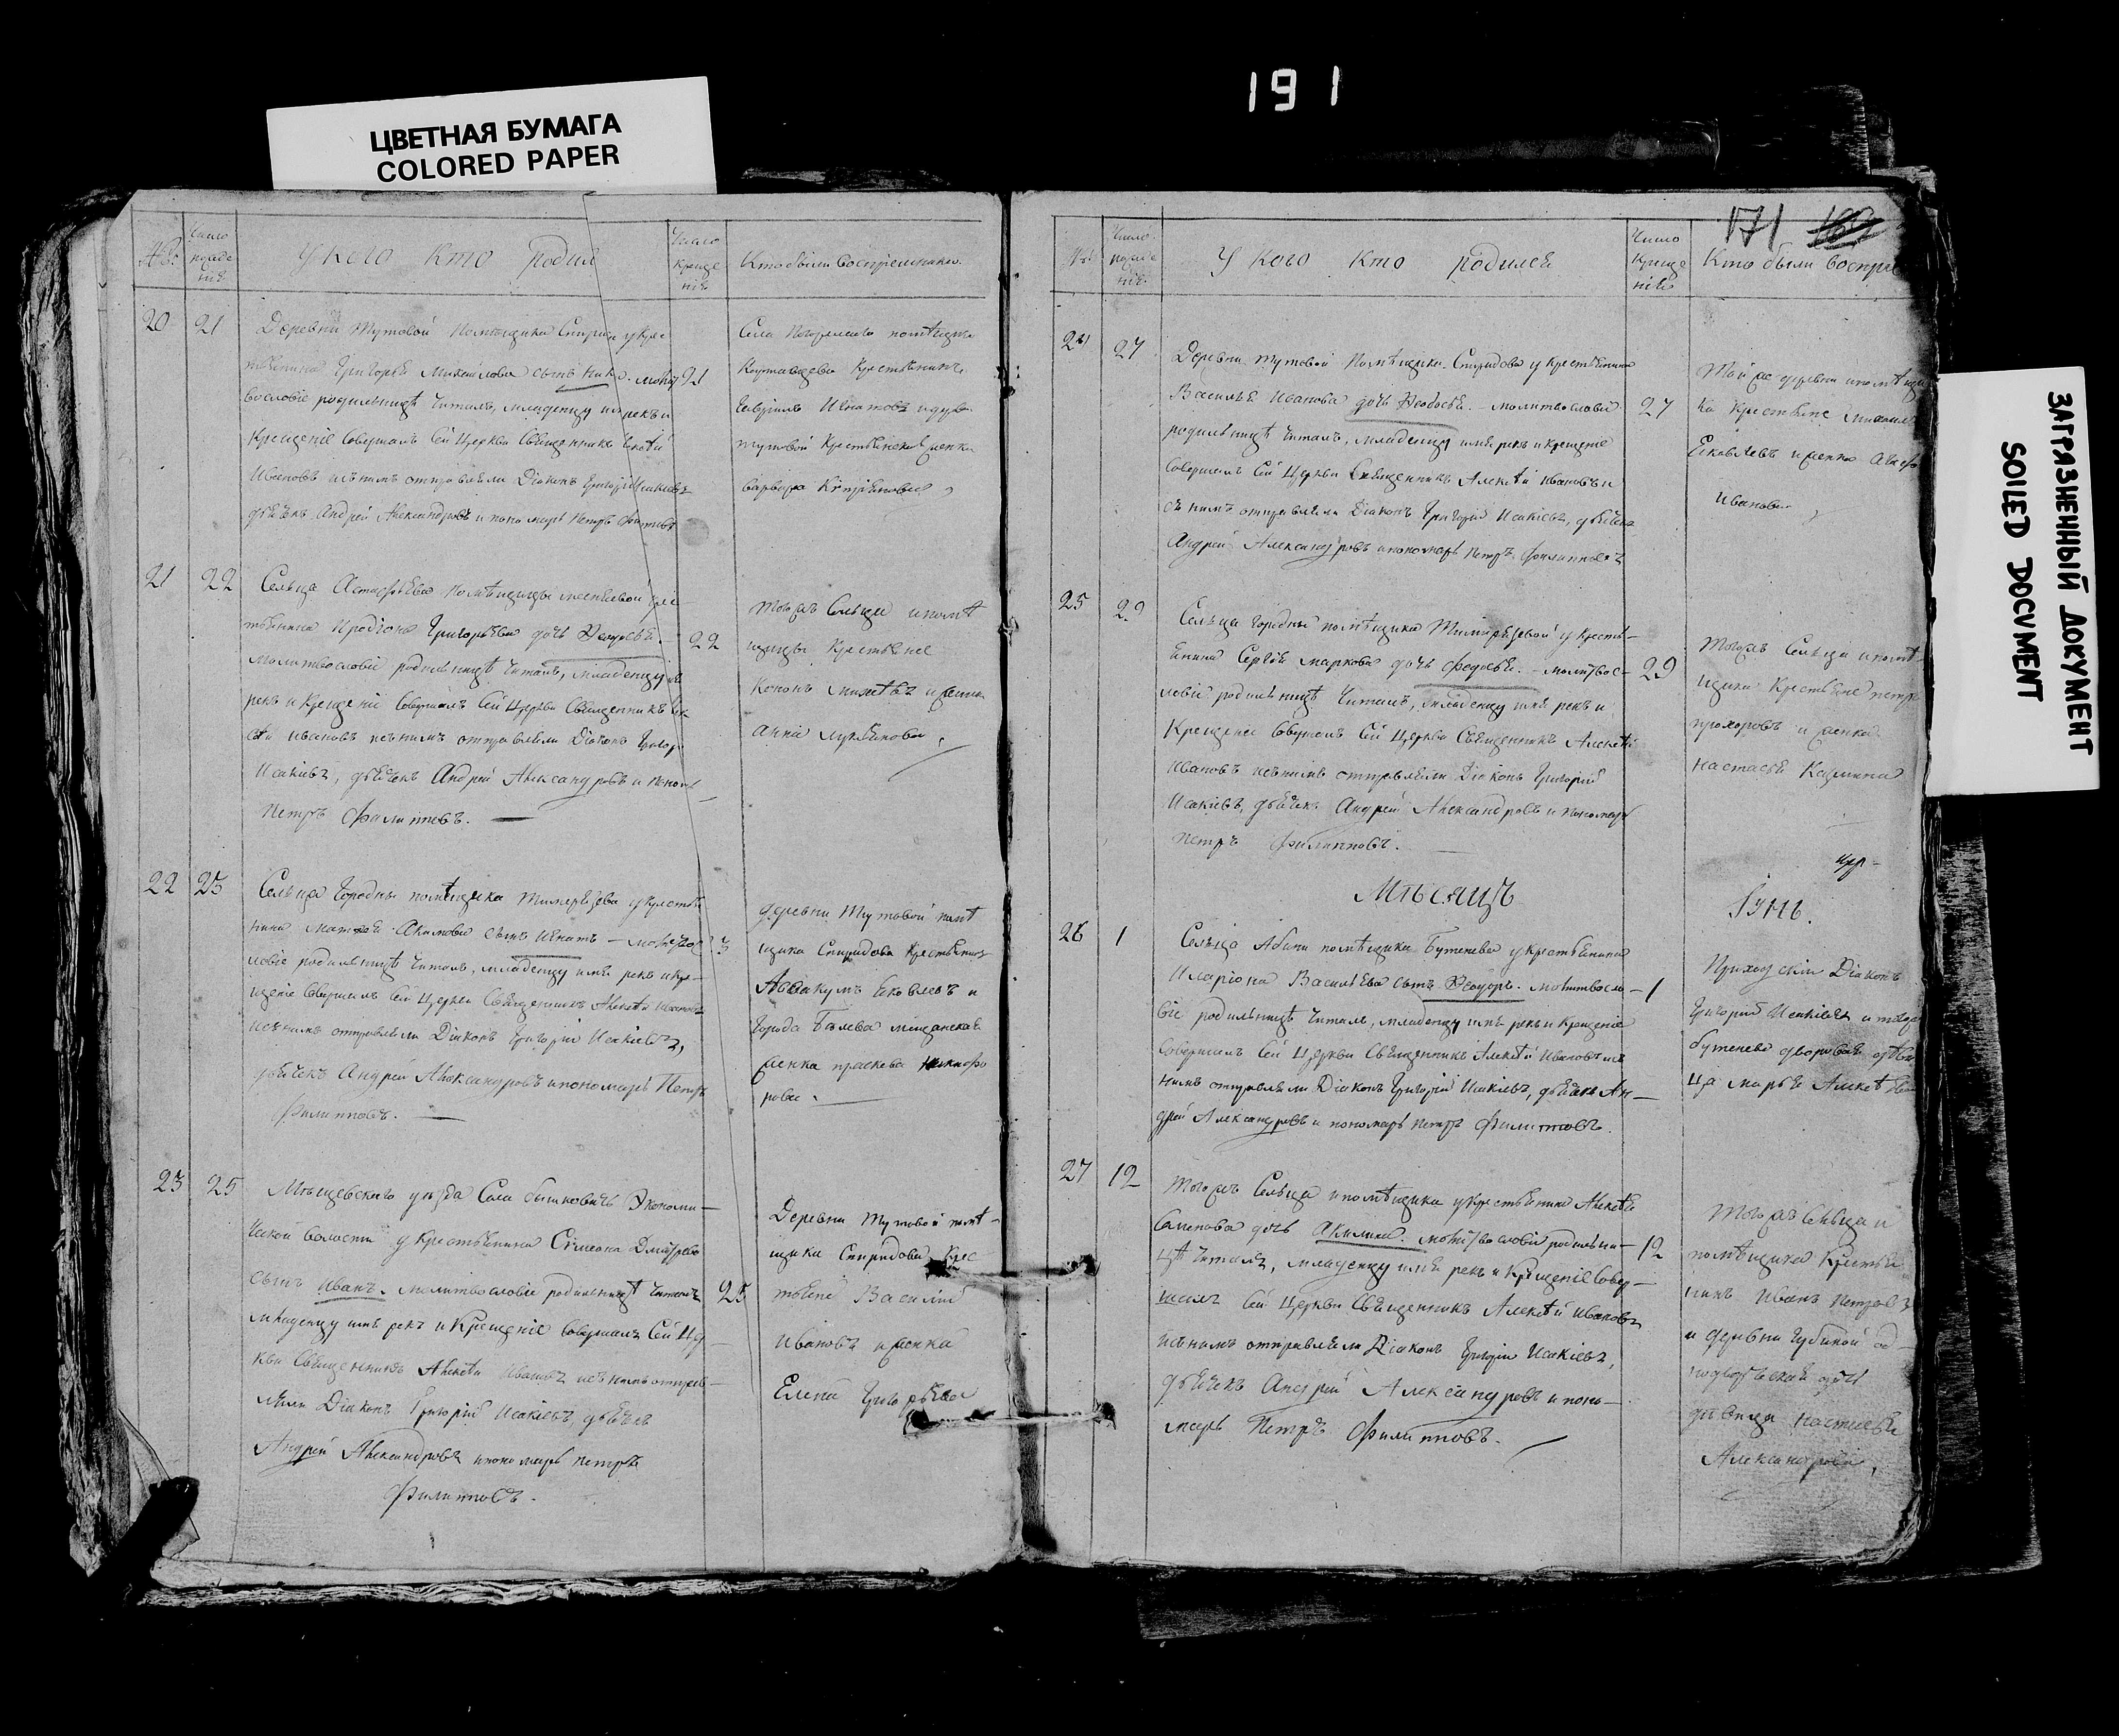 191
ЦВЕТНАЯ БУМАГА
COLORED PAPER
ЗАГРЯЗНЕННЫЙ ДОКУМЕНТ
SOILED DOCUMENT
№
Число рожде нія
У кого кто родил
Число креще нія
Кто были воспріемники
20
21
Деревни Тутовой помѣщика Спири у кре
Григорья Михайлова сынъ
вословіе родильницѣ читалъ, младенцу имя рекъ и
Крещеніе совершалъ сей церкви священникъ
Ивановъ и съ нимъ отправляли Діаконъ Григорій Исакіевъ
дьячекъ Андрей Александровъ и пономарь Петръ Филиповъ
21
Села помѣщика
Крестьянинъ
Гаврилъ Игнатовъ и дрвн
тутовой крестьянская женка
варвара
21
22
Сельца помѣщицы кре
тьянина Иродіона Григорьева дочь Ѳедосья.
молитвословіе родильницѣ читалъ, младенцу имя
рекъ и крещеніе совершалъ сей церкви священникъ Але
сѣи Ивановъ и съ нимъ отправляли Діаконъ Григор
Исакіевъ, дьячекъ Андрей Александровъ и поном
Петръ Филипповъ.
22
тогожъ сельца и помѣ
щицы крестьяне
и женка
анна
22
25
Сельца Городны помѣщика Тимирязева у крестья
нина Акимова сынъ Игнатъ — молитвос
ловіе родильницѣ читалъ, младенцу имя рекъ и кре
щеніе совершалъ сей церкви священникъ Алексѣи Ивановъ
и съ нимъ отправляли Діаконъ Григорій Исакіевъ,
дьячекъ Андрей Александровъ и пономарь Петръ
Филипповъ.
деревни Тутовой помѣ
щика Спиридова крестьянинъ
Аввакумъ Яковлевъ и
города Бѣлева мещанская
женка праскева никифо
рова
23
25
Мещевскаго уѣзда Села Экономи
ческой волости у крестьянина Симеона Дмитріева
сынъ Иванъ. молитвословіе родильницѣ читалъ
младенцу имя рекъ и Крещеніе совершалъ сей цер
кви священникъ Алексѣи Ивановъ и съ нимъ отправ
ляли Діаконъ Григорій Исакіевъ, дьячекъ
Андрей Александровъ и пономарь петръ
Филипповъ.
25
Деревни Тутовой помѣ
щика Спиридова Крес
тьяне Василій
Ивановъ и женка
Елена Григорьева
171
№
Число рожде нія
У кого кто родился
Число креще нія
Кто были воспріе
24
27
Деревни тутовой помѣщика Спиридова у крестьянина
Василья Иванова дочь Ѳедосья. — молитвословіе
родильницѣ читалъ, младенцу имя рекъ и крещеніе
совершалъ сей церкви Священникъ Алексѣи Ивановъ и
съ нимъ отправляли Діаконъ Григорій Исакіевъ, дьячекъ
Андрей Александровъ и пономарь Петръ Филипповъ
27
Той же деревни и помѣщи
ка крестьяне михаилъ
Яковлевъ и женка
Иванова
25
29
Сельца Городны помѣщика Тимирязевой у кресть
янина Сергея маркова дочь федосья. — молитвос
ловіе родильницѣ читалъ, младенцу имя рекъ и
Крещеніе совершалъ сей церкви Священникъ Алексѣи
Ивановъ и съ нимъ отправляли Діаконъ Григорій
Исакіевъ, дьячекъ Андрей Александровъ и пономарь
Петръ Филипповъ.
29
Тогожъ Сельца и помѣ
щика Крестьяне петръ
прохоровъ и женка
настасья
Мѣсяцъ
Іунь.
26
1
Сельца помѣщика Бутенева у крестьянина
Иларіона Васильева сынъ Ѳедоръ. молитвосло
віе родильницѣ читалъ, младенцу имя рекъ и Крещеніе
совершалъ сей церкви Священникъ Алексѣи Ивановъ и съ
нимъ отправляли Діаконъ Григорій Исакіевъ, дьячекъ Ан
дрей Александровъ и пономарь Петръ Филипповъ.
1
Приходскіи Діаконъ
Григорій Исакіевъ и
бутенева дворовая дѣви
ца марья Алексѣева
27
12
Тогожъ Сельца и помѣщика у крестьянина Алексѣя
Семенова дочь Акилина. молитвословіе родильни
цѣ читалъ, младенцу имя рекъ и Крещеніе совер
шалъ сей церкви Священникъ Алексѣи Ивановъ
и съ нимъ отправляли Діаконъ Григорій Исакіевъ,
дьячекъ Андрей Александровъ и поно
марь Петръ Филипповъ.
12
Тогожъ сельца и
помѣщика крестья
нинъ Иванъ Петровъ
и деревни од
нодворческая дочь
дѣвица настасья
Александрова